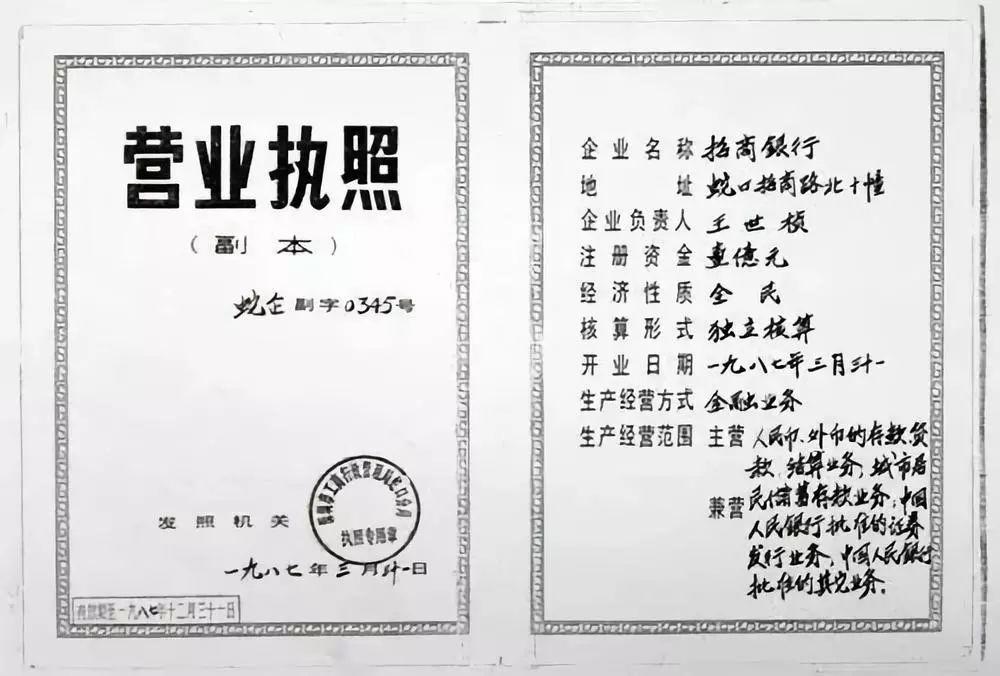 营业执照
（副本）
蛇企副字0345号
发照机关
深圳市工商行政管理局蛇口分局
执照专用章
一九八七年三月卅一日
有效期至一九八七年十二月三十一日
企业名称 招商銀行
地址 蛇口招商路北十幢
企业负责人 王世桢
注册资金 壹億元
经济性质 全民
核算形式 独立核算
开业日期 一九八七年三月卅一
生产经营方式 金融业务
生产经营范围 主营 人民币、外币的存款贷
款、结算业务；城市居
兼营 民储蓄存款业务；中国
人民银行批准的证券
发行业务，中国人民银行
批准的其它业务。